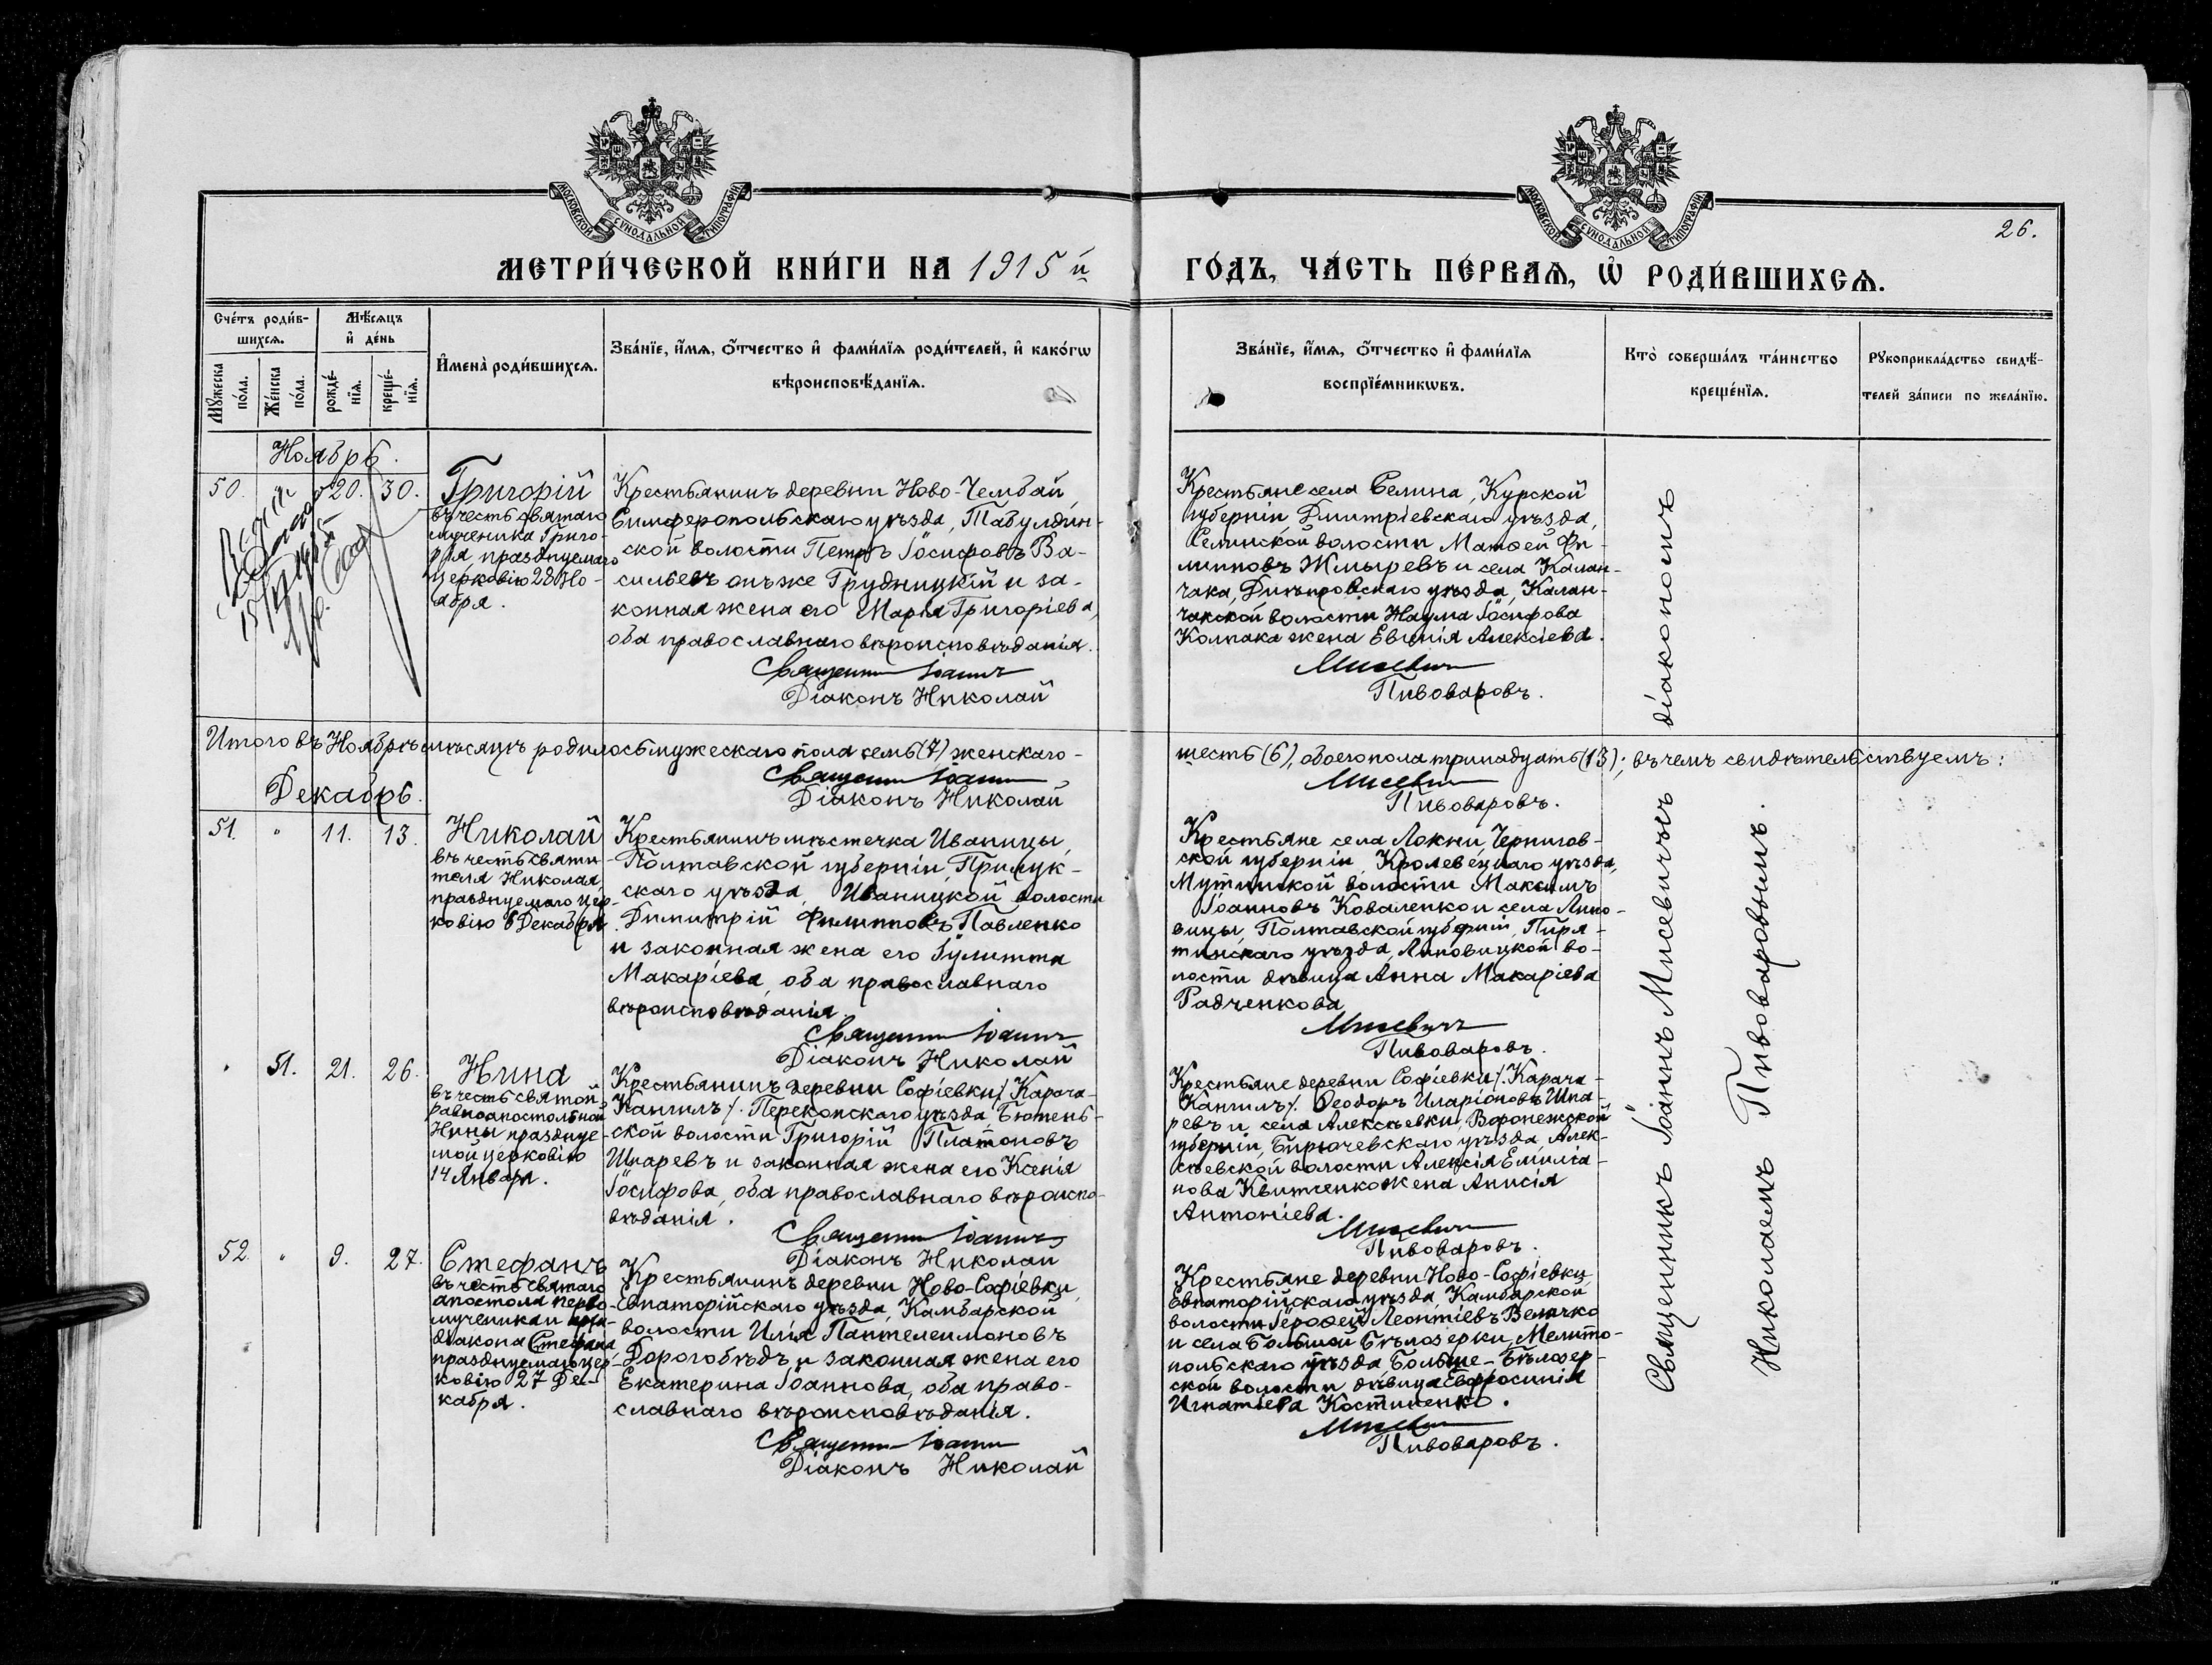 МОСКОВСКОЙ СѴНОДАЛЬНОЙ ТИПОГРАФІИ
МОСКОВСКОЙ СѴНОДАЛЬНОЙ ТИПОГРАФІИ
26.
МЕТРИ́ЧЕСКОЙ КНИ́ГИ НА 1915 й
ГО́ДЪ, ЧА́СТЬ ПЕ́РВАѦ, Ѡ РОДИ́ВШИХСѦ.
Сче́тъ роди́в-
шихсѧ.
Мꙋжеска по́ла.
Же́нска по́ла.
Мѣ́сѧцъ
и҆ де́нь
рожде́-
нїѧ.
креще́-
нїѧ.
И҆мена̀ роди́вшихсѧ.
Зва́нїе, и҆́мѧ, ѻ҆́тчество и҆ фами́лїѧ роди́телей, и҆ како́гѡ
вѣроисповѣ́данїѧ.
Зва́нїе, и҆́мѧ, ѻ҆́тчество и҆ фами́лїѧ
воспрїе́мникѡвъ.
Кто̀ соверша́лъ та́инство
креще́нїѧ.
Рꙋкоприкла́дство свидѣ́-
телей за́писи по жела́нїю.
Ноябрь.
50. 20. 30.
Григорій
въ честь святаго
мученика Григо-
рія, празднуемаго
церковію 28 Но-
ября.
Крестьянинъ деревни Ново-Чембай,
Симферопольскаго уѣзда, Табулдин-
ской волости Петръ Іосифовъ Ва-
сильевъ онъ же Грудницкій и за-
конная жена его Марія Григоріева,
оба православнаго вѣроисповѣданія.
Священникъ Іоаннъ
Діаконъ Николай
Крестьяне села Селина, Курской
губерніи, Дмитріевскаго уѣзда,
Селинской волости Матѳей Фи-
липповъ Жмыревъ и села Калан-
чака, Днѣпровскаго уѣзда, Калан-
чакской волости Наума Іосифова
Колпака жена Евгенія Алексіева.
Мисевичъ
Пивоваровъ.
Итого въ Ноябрѣ мѣсяцѣ родилось мужескаго пола семь (7), женскаго-
шесть (6), обоего пола тринадцать (13); въ чемъ свидѣтельствуемъ:
Священникъ Іоаннъ
Діаконъ Николай
Мисевичъ
Пивоваровъ.
Декабрь.
51. " 11. 13.
Николай
въ честь святи-
теля Николая,
празднуемаго цер-
ковію 6 Декабря.
Крестьянинъ мѣстечка Иваницы,
Полтавской губерніи, Прилук-
скаго уѣзда, Иваницкой волости
Димитрій Филипповъ Павленко
и законная жена его Іулитта
Макаріева, оба православнаго
вѣроисповѣданія.
Священникъ Іоаннъ
Діаконъ Николай
Крестьяне села Локни Чернигов-
ской губерніи, Кролевецкаго уѣзда,
Мутинской волости Максимъ
Іоанновъ Коваленко и села Липо-
вицы, Полтавской губерніи, Пиря-
тинскаго уѣзда, Липовицкой во-
лости дѣвица Анна Макаріева
Радченкова
Мисевичъ
Пивоваровъ.
" 51. 21. 26.
Нина
въ честь святой
равноапостольной
Нины празднуе-
мой церковію
14 Января.
Крестьянинъ деревни Софіевки /. Карача-
Кангилъ /. Перекопскаго уѣзда, Бютень-
ской волости Григорій Платоновъ
Шпаревъ и законная жена его Ксенія
Іосифова, оба православнаго вѣроиспо-
вѣданія.
Священникъ Іоаннъ
Діаконъ Николай
Крестьяне деревни Софіевки /. Карача-
Кангилъ /. Ѳеодоръ Иларіоновъ Шпа-
ревъ и села Алексѣевки, Воронежской
губерніи, Бирючевскаго уѣзда, Алек-
сѣевской волости Алексія Емиліа-
нова Квитченко жена Анисія
Антоніева.
Мисевичъ
Пивоваровъ.
52. " 9. 27.
Стефанъ
въ честь святаго
апостола перво-
мученика и архи-
діакона Стефана,
празднуемаго цер-
ковію 27 Де-
кабря.
Крестьянинъ деревни Ново-Софіевки,
Евпаторійскаго уѣзда, Камбарской
волости Илія Пантелеимоновъ
Дорогобѣдъ и законная жена его
Екатерина Іоаннова, оба право-
славнаго вѣроисповѣданія.
Священникъ Іоаннъ
Діаконъ Николай
Крестьяне деревни Ново-Софіевки,
Евпаторійскаго уѣзда, Камбарской
волости Іероѳей Леонтіевъ Величко
и села Большой Бѣлозерки, Мелито-
польскаго уѣзда Больше-Бѣлозер-
ской волости дѣвица Евфросинія
Игнатіева Костиненко.
Мисевичъ
Пивоваровъ.
Священникъ Іоаннъ Мисевичъ съ діакономъ
Николаемъ Пивоваровымъ.